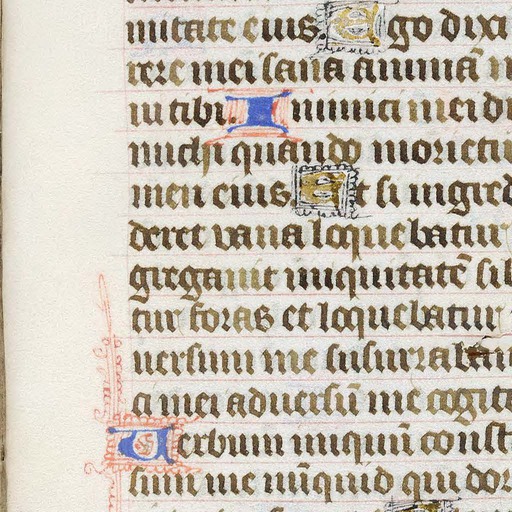 mitate eius Ego dixi
rere mei sana animā m
ui tibi. Inimici mei di
michi quando morietu
men eius. Et si ingred
deret vana loquebatur
gregauit iniquitatē sib
tur foras et loquebatur
uersum me susurrabant
a mei aduersū me cogita
Verbum iniquū const
sum me nūquid qui dor